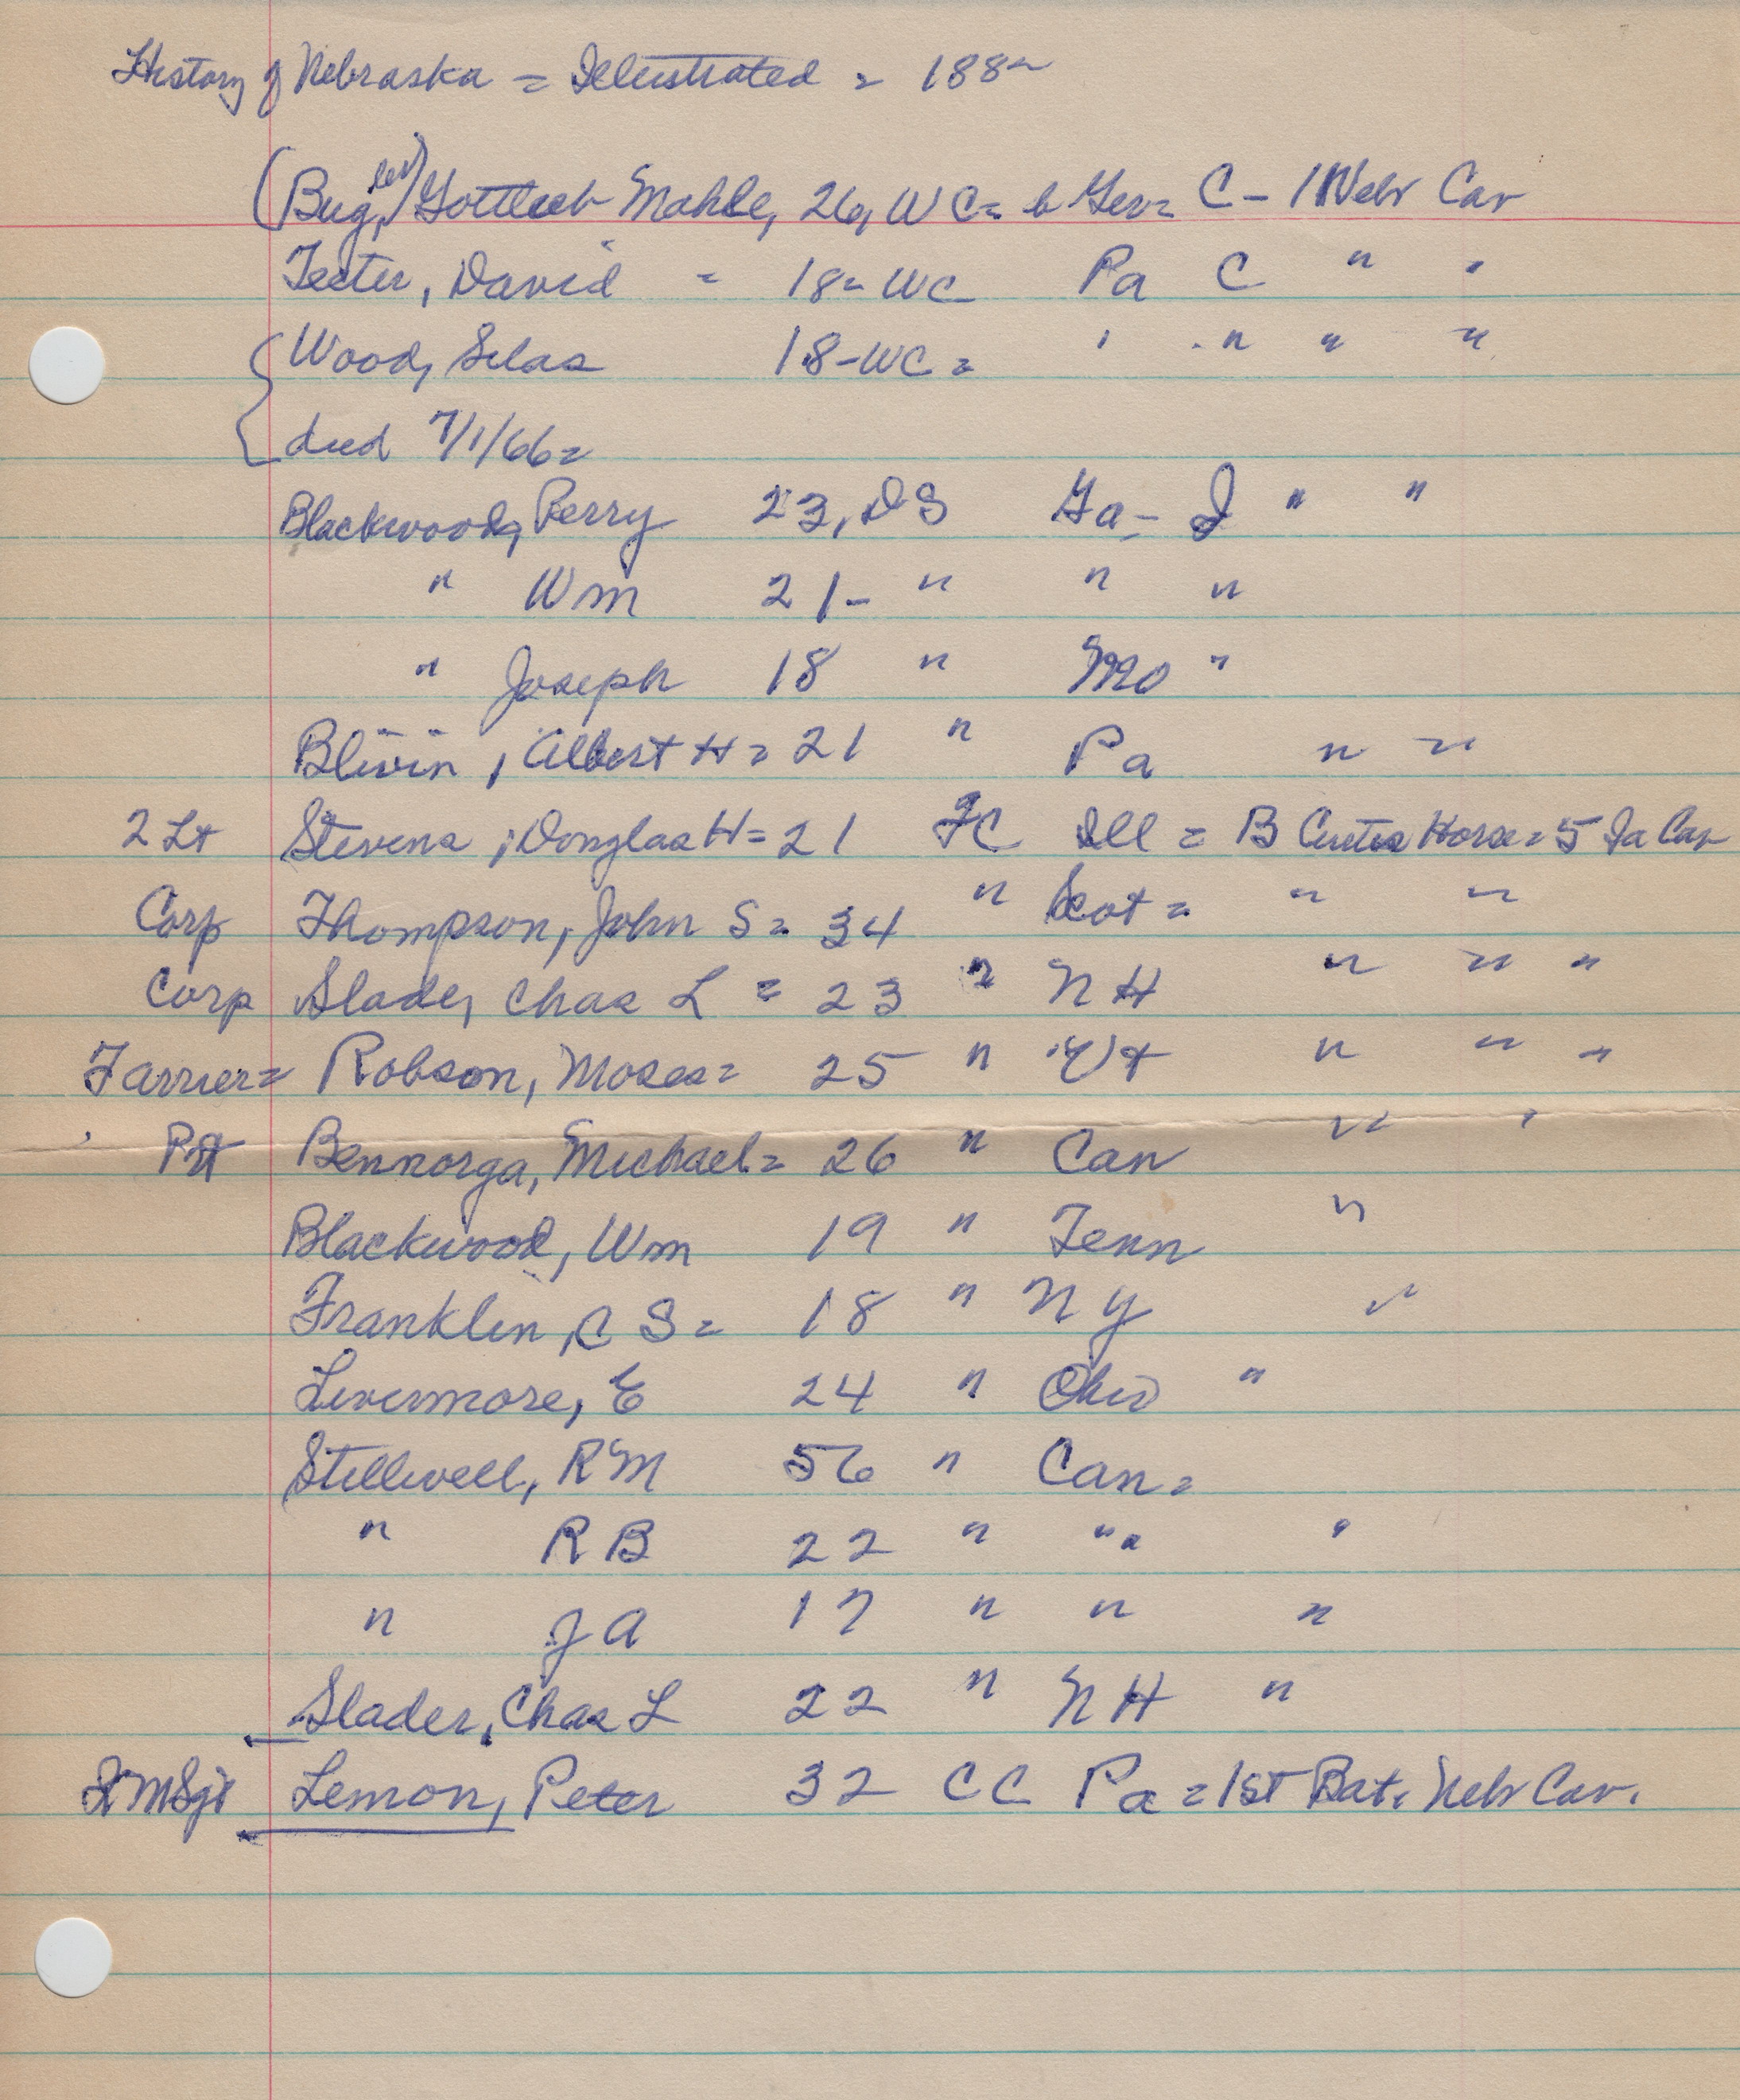 History of Nebraska = Illustrated = 1882
(Bugler) Gottlieb Mahle, 26, WC = b Ger = C - 1 Nebr Cav
Teeter, David = 18 = WC Pa C " "
Wood, Silas 18 - WC = " " " "
died 7/1/66 =
Blackwood, Perry 23, DS Ga - I " "
" Wm 21 - " " "
" Joseph 18 " Mo "
Blivin, Albert H = 21 " Pa " "
2 Lt Stevens, Douglas H = 21 FC Ill = B Curtis Horse = 5 Ia Cav
Corp Thompson, John S = 34 " Scot = " "
Corp Slade, Chas L = 23 " NH " " "
Farrier = Robson, Moses = 25 " Vt " " "
Pvt Bennorga, Michael = 26 " Can " "
Blackwood, Wm 19 " Tenn "
Franklin, C S = 18 " N Y "
Livermore, E 24 " Ohio "
Stillwell, R M 56 " Can =
" R B 22 " " "
" J A 17 " " "
Slader, Chas L 22 " NH "
Q M Sgt Lemon, Peter 32 CC Pa = 1st Bat. Nebr Cav.